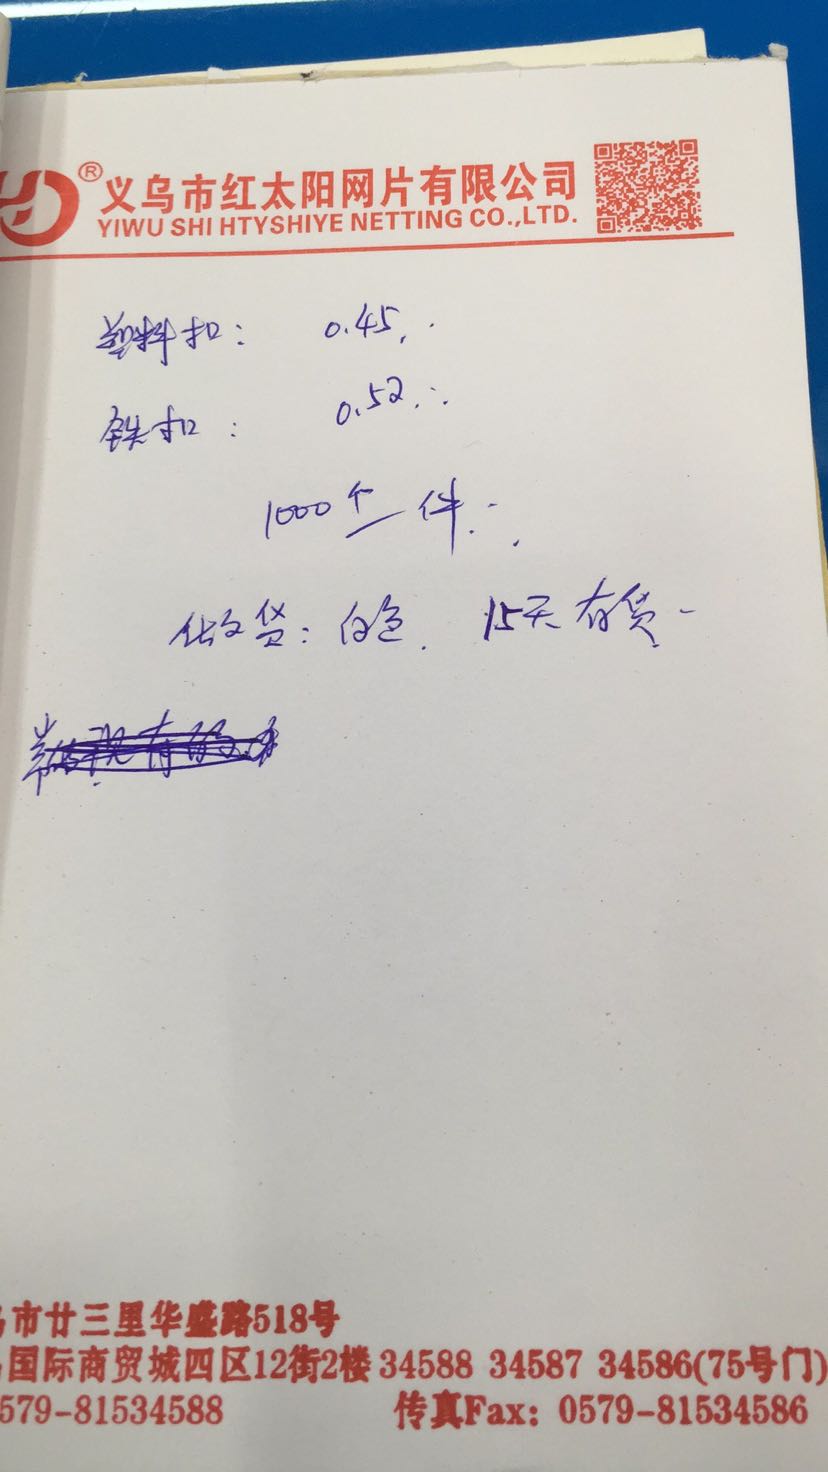 ® 义乌市红太阳网片有限公司
YIWU SHI HTYSHIYE NETTING CO.,LTD.
塑料扣: 0.45
铁扣: 0.52
1000个一件
货: 白色. 15天有货
市廿三里华盛路518号
国际商贸城四区12街2楼 34588 34587 34586(75号门)
579-81534588 传真Fax: 0579-81534586